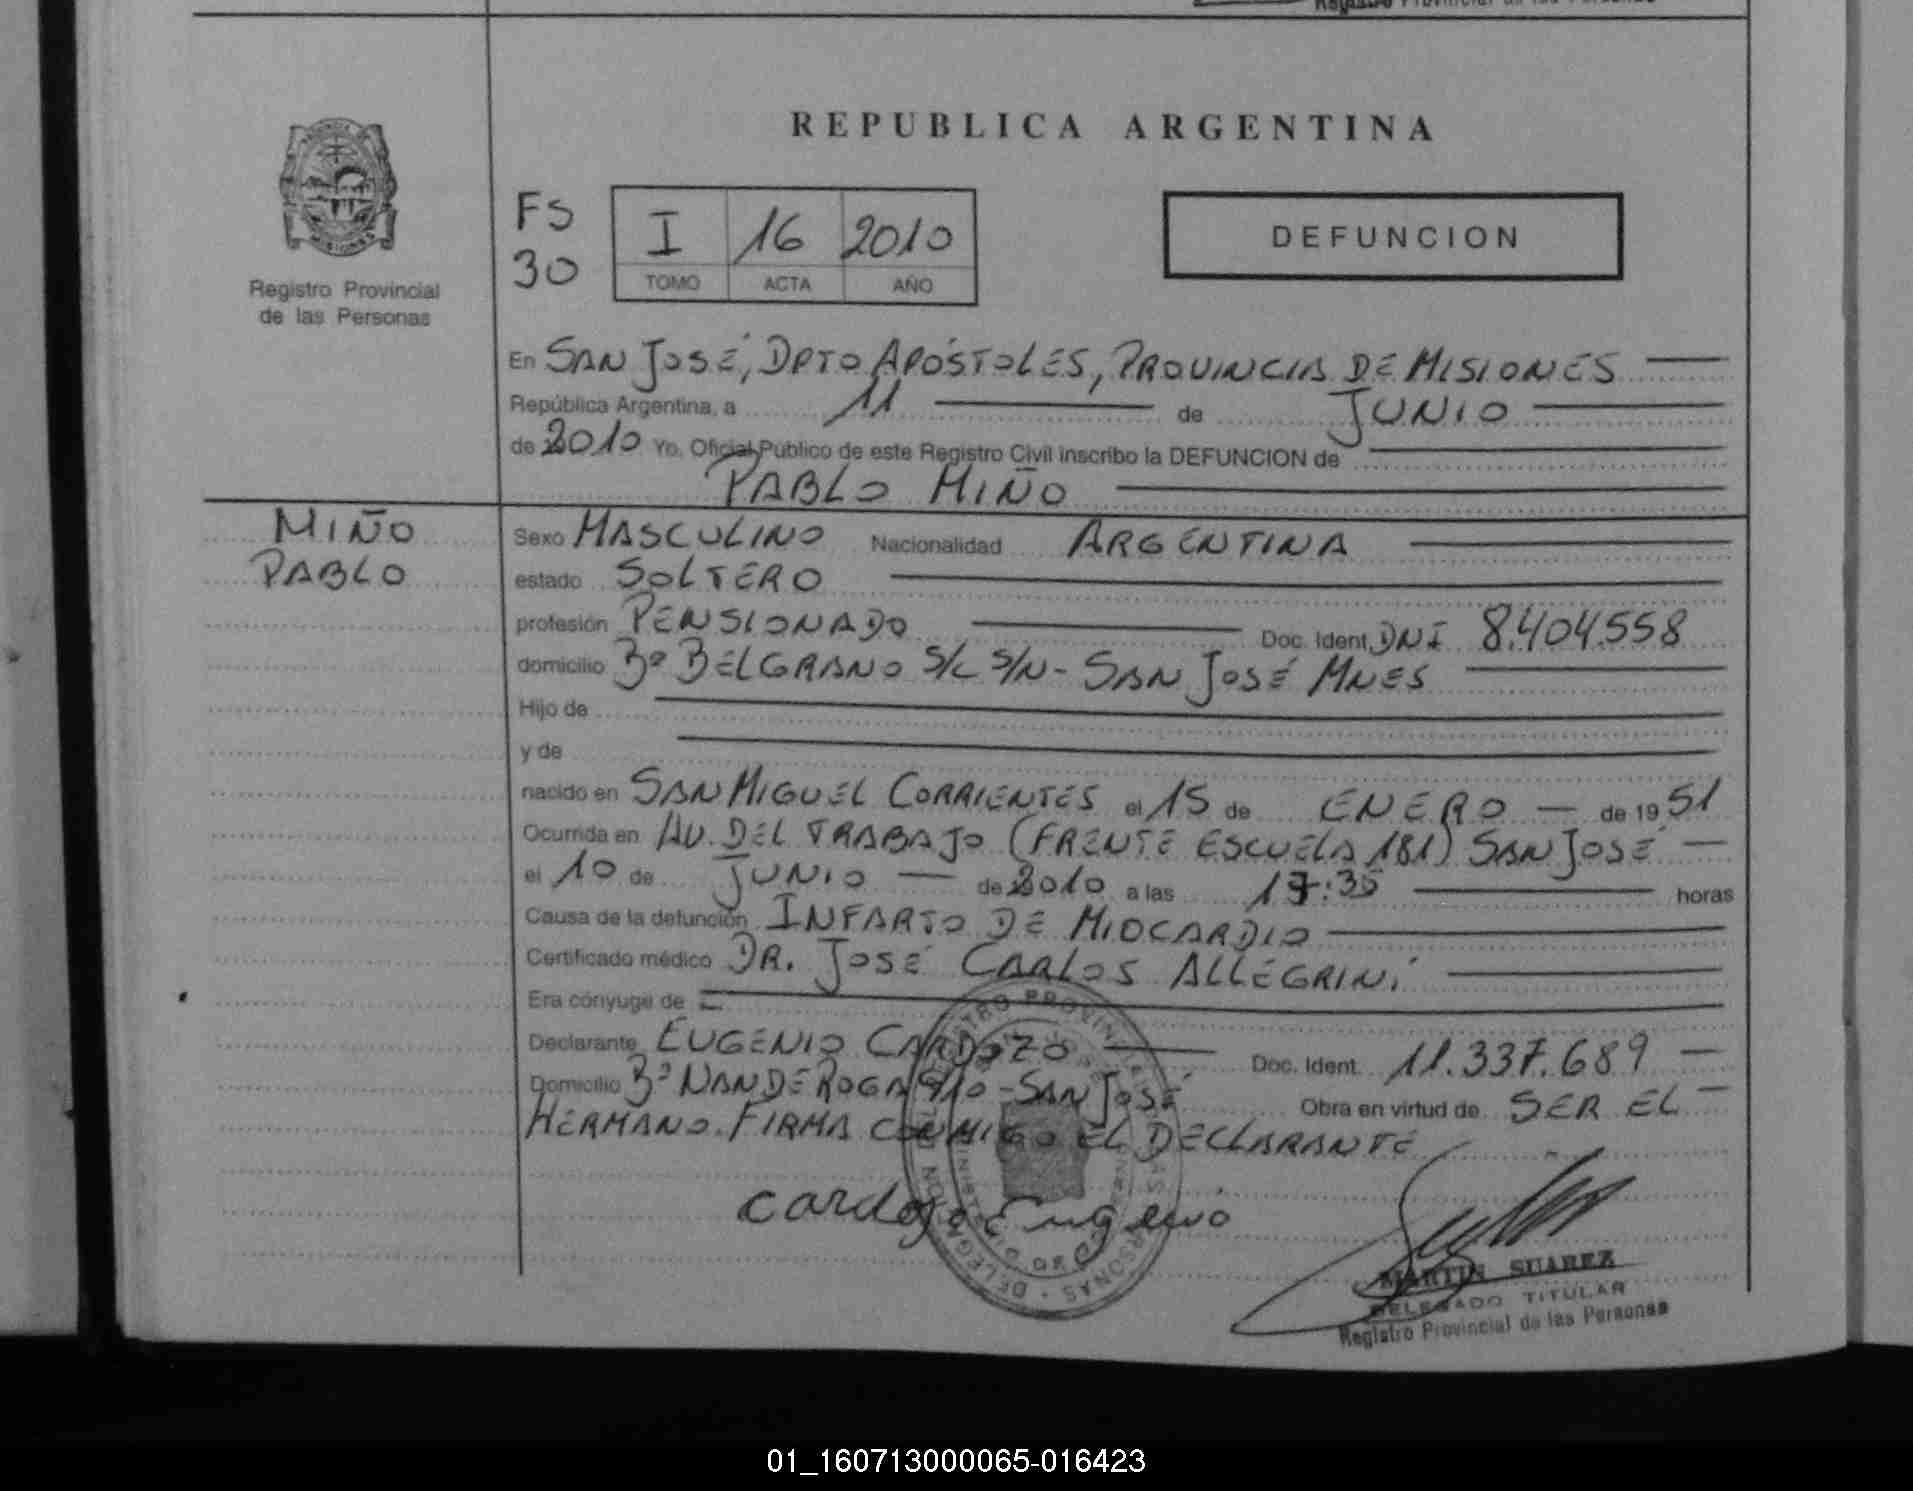 Registro Provincial de las Personas
PROVINCIA DE
MISIONES
Registro Provincial
de las Personas
REPUBLICA ARGENTINA
FS
30
I 16 2010
TOMO ACTA AÑO
DEFUNCION
En SAN JOSÉ, DPTO APÓSTOLES, PROVINCIA DE MISIONES
República Argentina, a 11 de JUNIO
de 2010 Yo, Oficial Público de este Registro Civil inscribo la DEFUNCION de
PABLO MIÑO
MIÑO
PABLO
Sexo MASCULINO Nacionalidad ARGENTINA
estado SOLTERO
profesión PENSIONADO Doc. Ident. DNI 8.404.558
domicilio Bº BELGRANO S/C S/N - SAN JOSÉ MNES
Hijo de
y de
nacido en SAN MIGUEL CORRIENTES el 15 de ENERO de 1951
Ocurrida en AV. DEL TRABAJO (FRENTE ESCUELA 181) SAN JOSÉ
el 10 de JUNIO de 2010 a las 17:35 horas
Causa de la defunción INFARTO DE MIOCARDIO
Certificado médico DR. JOSÉ CARLOS ALLEGRINI
Era cónyuge de
Declarante EUGENIO CARDOZO Doc. Ident. 11.337.689
Domicilio Bº NANDE ROGA 910 - SAN JOSÉ Obra en virtud de SER EL
HERMANO. FIRMA CONMIGO EL DECLARANTE
Cardozo Eugenio
MARTIN SUAREZ
DELEGADO TITULAR
Registro Provincial de las Personas
01_160713000065-016423